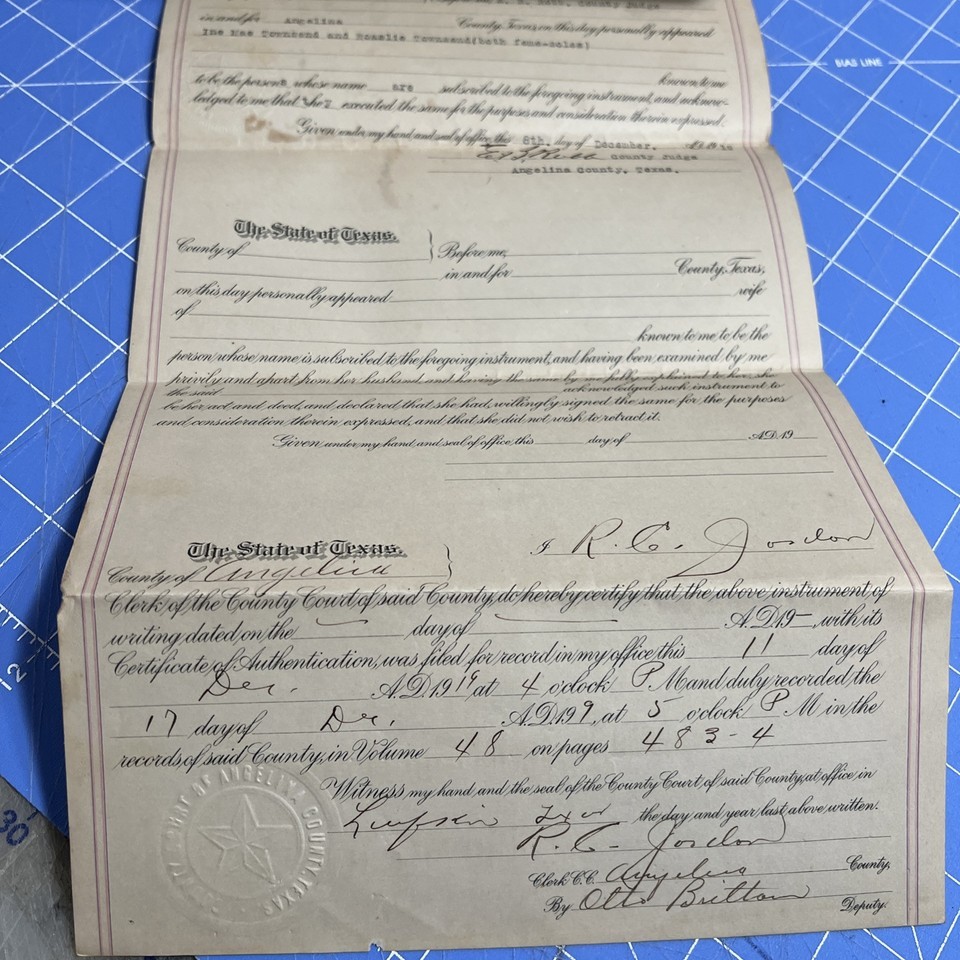 County Judge
in and for Angelina County, Texas, on this day personally appeared
Ine Mae Townsend and Rosalie Townsend(both feme-soles)
known to me
to be the persons whose name are subscribed to the foregoing instrument, and acknow-
ledged to me that they executed the same for the purposes and consideration therein expressed.
Given under my hand and seal of office this 8th. day of December. A.D. 19
County Judge
Angelina County, Texas.
The State of Texas.
County of
Before me,
in and for County, Texas,
on this day personally appeared wife
of
known to me to be the
person whose name is subscribed to the foregoing instrument, and having been examined by me
privily and apart from her husband, and having the same by me fully explained to her, she
the said acknowledged such instrument to
be her act and deed, and declared that she had, willingly signed the same for the purposes
and consideration therein expressed, and that she did not wish to retract it.
Given under my hand and seal of office this day of A.D. 19
The State of Texas.
County of Angelina
I R. C. Jordon
Clerk of the County Court of said County, do hereby certify that the above instrument of
writing dated on the — day of — A.D. 19—, with its
Certificate of Authentication, was filed for record in my office this 11 day of
Dec. A.D. 1919 at 4 o'clock P.M and duly recorded the
17 day of Dec. A.D. 199, at 5 o'clock P.M in the
records of said County, in Volume 48 on pages 483-4
Witness my hand and the seal of the County Court of said County, at office in
Lufkin Texas the day and year last above written.
R. C. Jordon
Clerk C.C. Angelina County,
By Otto Brittain Deputy.
COUNTY COURT OF ANGELINA COUNTY, TEXAS
BIAS LINE
12
30